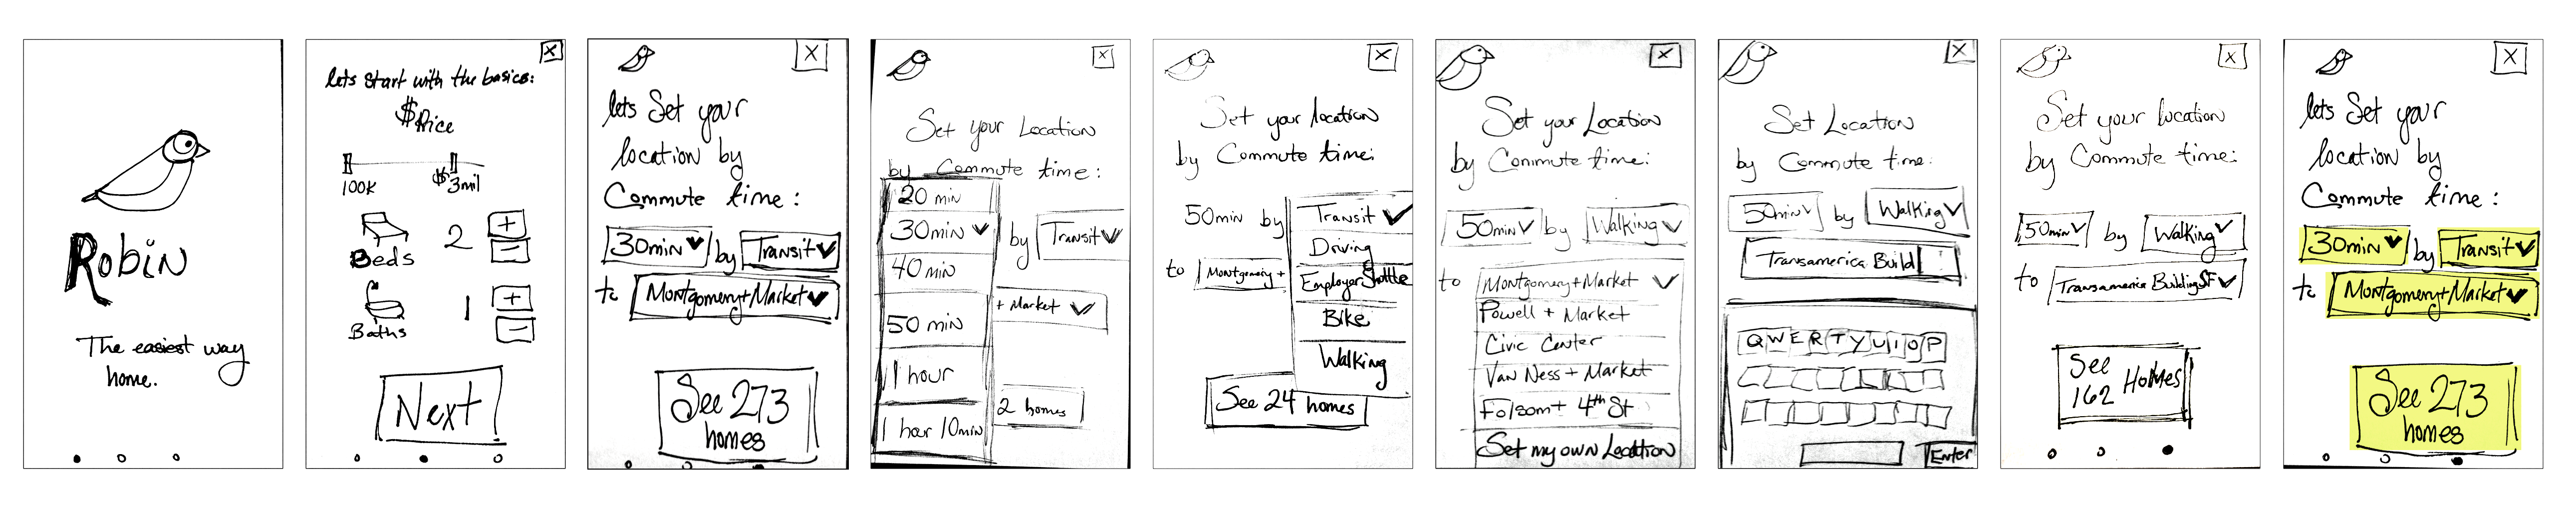 Robin
The easiest way
home.
X
lets start with the basics:
$Price
100K
$3mil
Beds
2
+
-
Baths
1
+
-
Next
X
lets Set your
location by
Commute time:
30min by Transit
to Montgomery+Market
See 273
homes
X
Set your Location
by Commute time:
20 min
30min
by Transit
40 min
+ Market
50 min
1 hour
2 homes
1 hour 10min
X
Set your location
by Commute time:
50min by Transit
Driving
to Montgomery +
Employer Shuttle
Bike
Walking
See 24 homes
X
Set your Location
by Commute time:
50min by Walking
to Montgomery+Market
Powell + Market
Civic Center
Van Ness + Market
Folsom + 4th St
Set my own Location
X
Set Location
by Commute time:
50min by Walking
Transamerica Build
QWERTYUIOP
Enter
X
Set your location
by Commute time:
50min by Walking
to Transamerica Building SF
See
162 Homes
X
lets Set your
location by
Commute time:
30min by Transit
to Montgomery+Market
See 273
homes